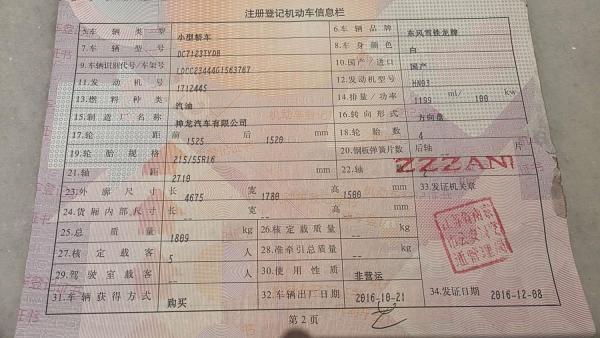 注册登记机动车信息栏
5.车辆类型 小型轿车 6.车辆品牌 东风雪铁龙牌
7.车辆型号 DC7123TYDB 8.车身颜色 白
9.车辆识别代号/车架号 LDCC23444G1563767 10.国产/进口 国产
11.发动机号 1712445 12.发动机型号 HN03
13.燃料种类 汽油 14.排量/功率 1199 ml/ 100 kw
15.制造厂名称 神龙汽车有限公司 16.转向形式 方向盘
17.轮距 前 1525 后 1520 mm 18.轮胎数 4
19.轮胎规格 215/55R16 20.钢板弹簧片数 后轴 片
21.轴距 2710 mm 22.轴 ZZZAN
23.外廓尺寸 长 4675 宽 1780 高 1500 mm 33.发证机关章
24.货厢内部尺寸 长 -- 宽 -- 高 -- mm
25.总质量 1809 kg 26.核定载质量 -- kg
27.核定载客 5 人 28.准牵引总质量 -- kg
29.驾驶室载客 -- 人 30.使用性质 非营运
31.车辆获得方式 购买 32.车辆出厂日期 2016-10-21 34.发证日期 2016-12-08
第2页